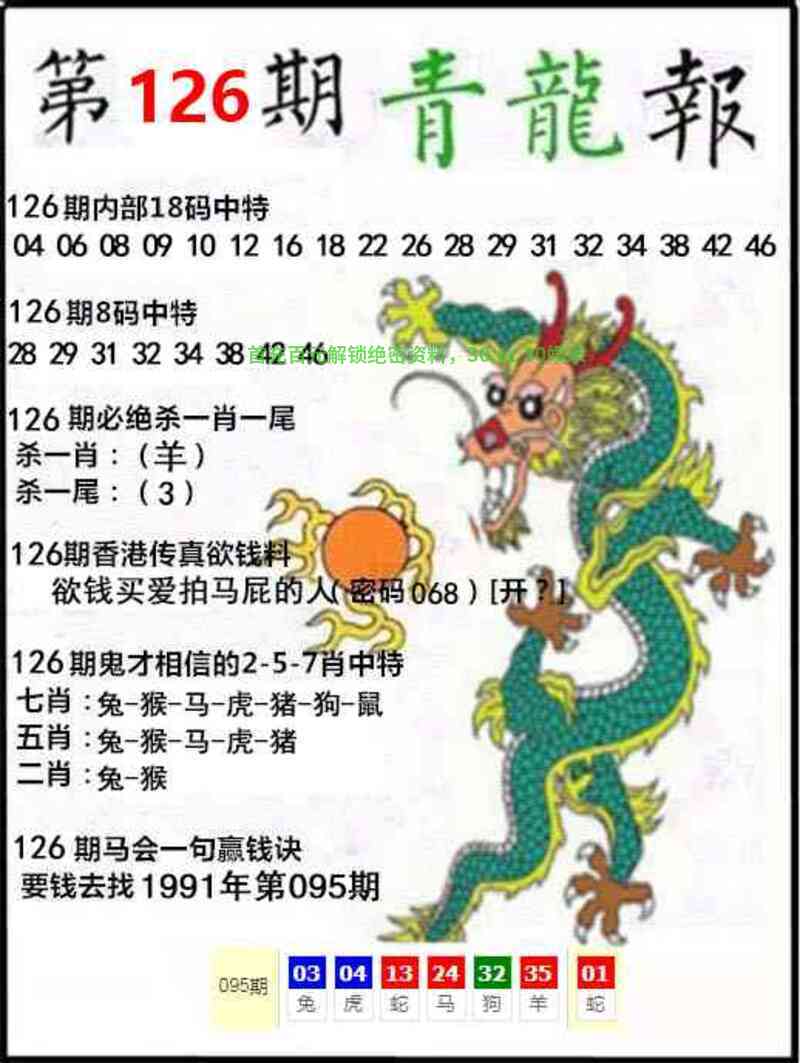 第126期青龍報
126期内部18码中特
04 06 08 09 10 12 16 18 22 26 28 29 31 32 34 38 42 46
126期8码中特
28 29 31 32 34 38 42 46
126期必绝杀一肖一尾
杀一肖:(羊)
杀一尾:(3)
126期香港传真欲钱料
欲钱买爱拍马屁的人(密码068)[开?]
126期鬼才相信的2-5-7肖中特
七肖:兔-猴-马-虎-猪-狗-鼠
五肖:兔-猴-马-虎-猪
二肖:兔-猴
126期马会一句赢钱诀
要钱去找1991年第095期
095期 03 04 13 24 32 35 01
兔 虎 蛇 马 狗 羊 蛇